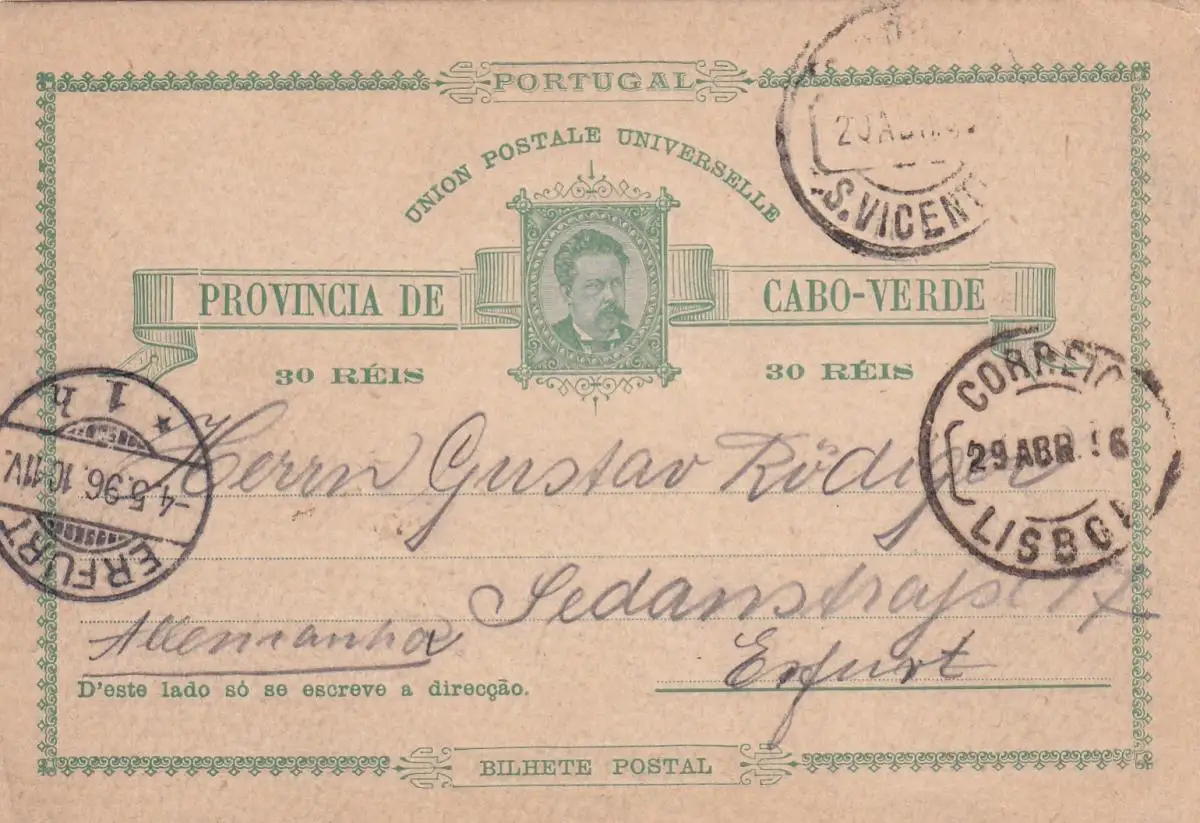 PORTUGAL
UNION POSTALE UNIVERSELLE
PROVINCIA DE CABO-VERDE
30 RÉIS 30 RÉIS
S. VICENT
CORREIO
29 ABR. 6
LISBO
* 1 h
-4.5.96.10-11V.
ERFURT
Herrn Gustav Rödiger
Sedanstraße
Erfurt
Allemanha
D'este lado só se escreve a direcção.
BILHETE POSTAL